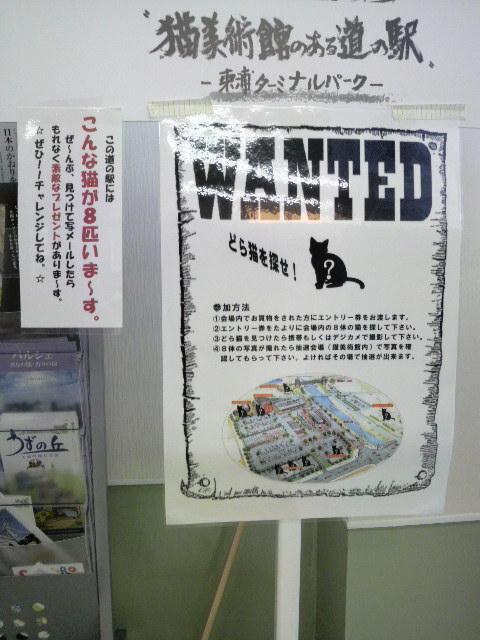 "猫美術館のある道の駅"
－東浦ターミナルパーク－
この道の駅には
こんな猫が8匹いま〜す。
ぜ〜んぶ、見つけて写メールしたら
もれなく素敵なプレゼントがありま〜す。
☆ ぜひ！ーチャレンジしてね。☆
WANTED
どら猫を探せ！
?
参加方法
①会場内でお買物をされた方にエントリー券をお渡します。
②エントリー券をたよりに会場内の8体の猫を探して下さい。
③どら猫を見つけたら携帯もしくはデジカメで撮影して下さい。
④8体の写真が撮れたら抽選会場（猫美術館内）で写真を確
認してもらって下さい。よければその場で抽選が出来ます。
日本のかおり
パルシェ
うずの丘